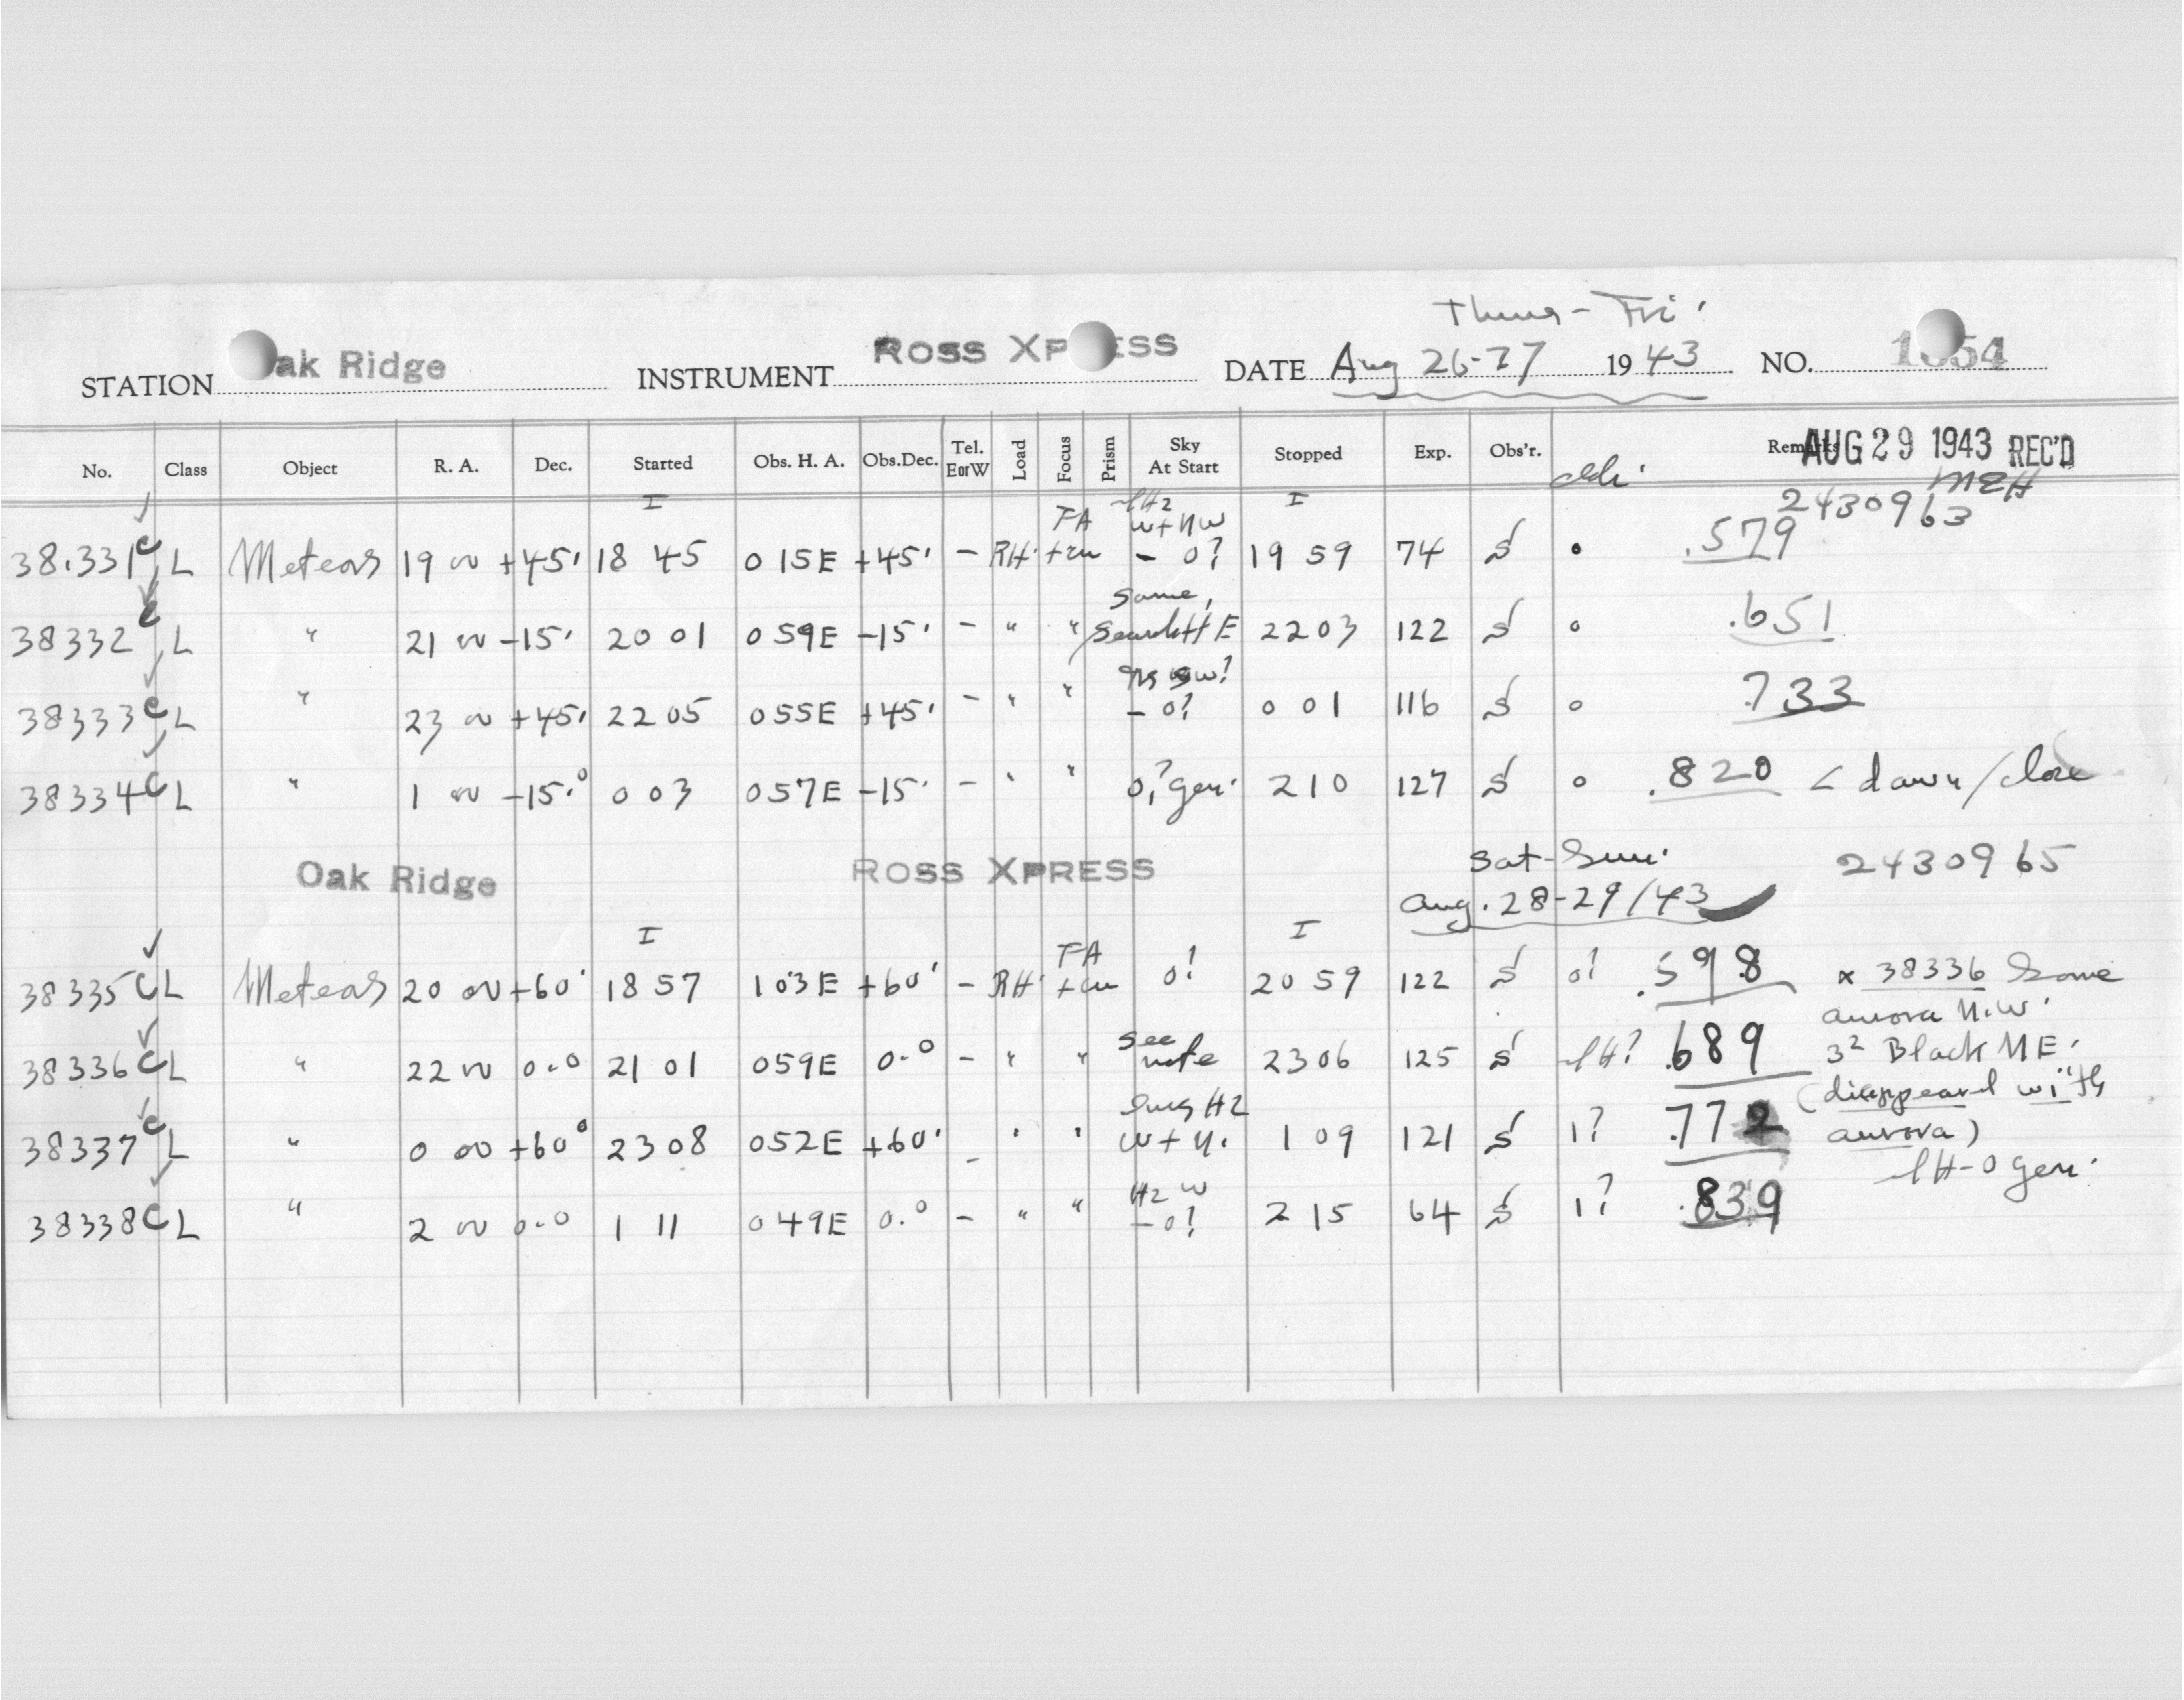 Thurs - Fri.
STATION Oak Ridge INSTRUMENT ROSS XPRESS DATE Aug 26-27 1943 NO. 1354
No. Class Object R. A. Dec. Started Obs. H. A. Obs.Dec. Tel. E or W Load Focus Prism Sky At Start Stopped Exp. Obs'r. Remarks AUG 29 1943 REC'D
MEH
I I 2430963
FA W + NW
38.331 C L Meteors 19 00 +45° 18 45 0 15E +45° - RH. - 0? 19 59 74 S 0 .579
Same,
38332 C L " 21 00 -15° 20 01 0 59E -15° - " " 22 03 122 S 0 .651
38333 C L " 23 00 +45° 22 05 0 55E +45° - " " - 0? 0 01 116 S 0 .733
38334 C L " 1 00 -15.° 0 03 0 57E -15° - " " 0,? gen. 2 10 127 S 0 .820 < dawn/close
Oak Ridge ROSS XPRESS Sat-Sun. 2430965
Aug. 28-29/43
I I
FA
38335 C L Meteors 20 00 +60° 18 57 1 03E +60° - RH. 0? 20 59 122 S 0? .598 x 38336 Some
aurora N.W.
see
38336 C L " 22 00 0.0 21 01 0 59E 0.0 - " " note 23 06 125 S .689 Black NE.
(disappeared with
HZ
38337 C L " 0 00 +60° 23 08 0 52E +60° - " " W + N. 1 09 121 S 1? .772 aurora)
- 0 gen.
HZ W
38338 C L " 2 00 0.0 1 11 0 49E 0.0 - " " - 0? 2 15 64 S 1? .839